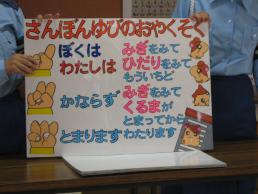 さんぼんゆびのおやくそく
ぼくは
わたしは
みぎをみて
ひだりをみて
もういちど
かならず
みぎをみて
くるまが
とまってから
とまります
わたります